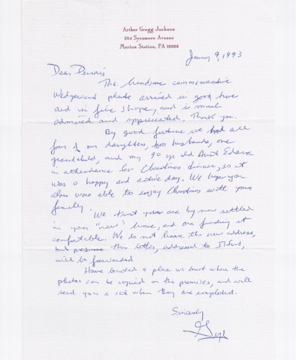 Arthur Gregg Jackson
264 Sycamore Avenue
Merion Station, PA 19066
January 9, 1993
Dear Dennis
The handsome commemorative
Wedgwood plate arrived in good time
and in fine shape, and is much
admired and appreciated. Thank you.
By good fortune we had all
four of our daughters, two husbands, one
grandchild, and my 90 yr old Aunt
in attendance for Christmas dinner, so it
was a happy and active day. We hope you
also were able to enjoy Christmas with your
family.
We trust you are by now settled
in your "new" home, and are finding it
comfortable. We do not have the new address,
and presume this letter, addressed to
will be forwarded.
Have located a place us
photos can be copied on the premises, and will
send you a set when they are completed.
Sincerely
Gregg